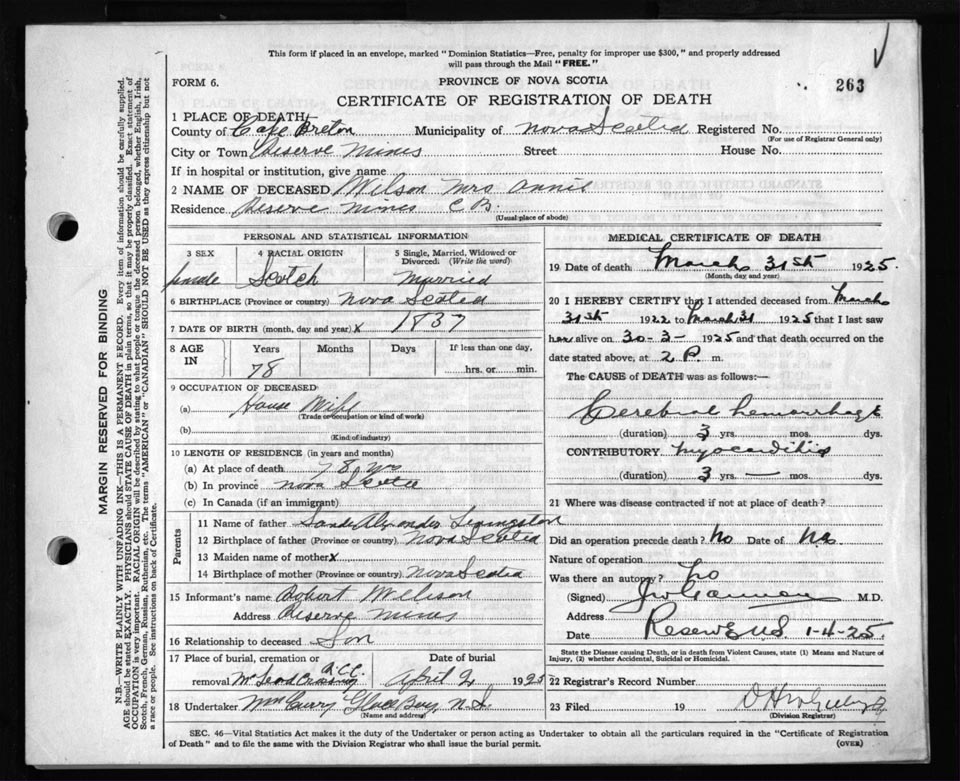 This form if placed in an envelope, marked "Dominion Statistics—Free, penalty for improper use $300," and properly addressed
will pass through the Mail "FREE."
FORM 6.
PROVINCE OF NOVA SCOTIA
263
CERTIFICATE OF REGISTRATION OF DEATH
1 PLACE OF DEATH
County of Cape Breton Municipality of Nova Scotia Registered No.
(For use of Registrar General only)
City or Town Reserve Mines Street House No.
If in hospital or institution, give name
2 NAME OF DECEASED Wilson Mrs Annie
Residence Reserve Mines C B.
(Usual place of abode)
PERSONAL AND STATISTICAL INFORMATION
3 SEX 4 RACIAL ORIGIN 5 Single, Married, Widowed or
Divorced. (Write the word)
female Scotch Married
6 BIRTHPLACE (Province or country) Nova Scotia
7 DATE OF BIRTH (month, day and year) x 1837
8 AGE IN Years Months Days If less than one day,
78 hrs. or min.
9 OCCUPATION OF DECEASED
(a) House Wife
(Trade or occupation or kind of work)
(b)
(Kind of industry)
10 LENGTH OF RESIDENCE (in years and months)
(a) At place of death 78 yrs
(b) In province Nova Scotia
(c) In Canada (if an immigrant)
Parents
11 Name of father Alexander Livingston
12 Birthplace of father (Province or country) Nova Scotia
13 Maiden name of mother x
14 Birthplace of mother (Province or country) Nova Scotia
15 Informant's name Robert Wilson
Address Reserve Mines
16 Relationship to deceased Son
17 Place of burial, cremation or Date of burial
removal Crossing April 2 1925
18 Undertaker Glace Bay N.S.
(Name and address)
MEDICAL CERTIFICATE OF DEATH
19 Date of death March 31st 1925.
(Month, day and year)
20 I HEREBY CERTIFY that I attended deceased from March
31st 1922 to March 31 1925 that I last saw
her alive on 30-3- 1925 and that death occurred on the
date stated above, at 2 P. m.
The CAUSE of DEATH was as follows:
Cerebral hemorrhage
(duration) 3 yrs. mos. dys.
CONTRIBUTORY myocarditis
(duration) 3 yrs. mos. dys.
21 Where was disease contracted if not at place of death?
Did an operation precede death? No Date of No
Nature of operation
Was there an autopsy? No
(Signed) M.D.
Address
Date Reserve 1-4-25
State the Disease causing Death, or in death from Violent Causes, state (1) Means and Nature of
Injury, (2) whether Accidental, Suicidal or Homicidal.
22 Registrar's Record Number
23 Filed 19
(Division Registrar)
SEC. 46—Vital Statistics Act makes it the duty of the Undertaker or person acting as Undertaker to obtain all the particulars required in the "Certificate of Registration
of Death" and to file the same with the Division Registrar who shall issue the burial permit.
(OVER)
MARGIN RESERVED FOR BINDING
N.B.—WRITE PLAINLY WITH UNFADING INK—THIS IS A PERMANENT RECORD. Every item of information should be carefully supplied.
AGE should be stated EXACTLY. PHYSICIANS should STATE CAUSE OF DEATH in plain terms, so that it may be properly classified. Exact statement of
OCCUPATION is very important. RACIAL ORIGIN will be described by stating to what people or tongue the deceased person belonged, whether English, Irish,
Scotch, French, German, Russian, Ruthenian, etc. The terms "AMERICAN" or "CANADIAN" SHOULD NOT BE USED as they express citizenship but not
a race or people. See instructions on back of Certificate.